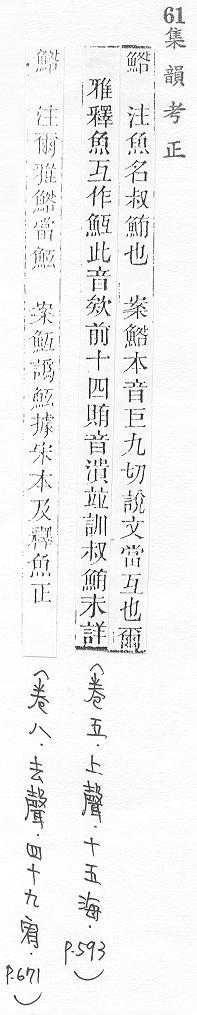 61集韻考正
鮥 注魚名叔鮪也 桉鮥本音巨九切說文當互也爾
雅釋魚互作魱此音欸前十四賄音潰竝訓叔鮪未詳
(卷五．上聲．十五海．P.593)
注爾雅鮥當魱 桉魱譌魱據宋本及釋魚正
(卷八．去聲．四十九宥．P.671)